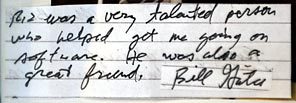 Ric was a very talented person
who helped get me going on
software. He was also a
great friend. Bill Gates